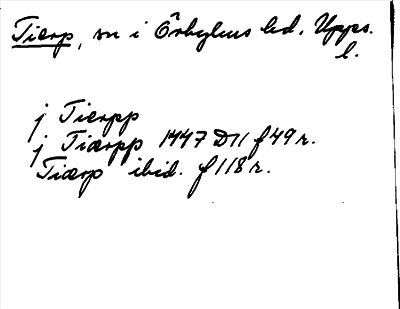 Tierp, sn i Örbyhus hd. Upps.
l.
j Tierpp
j Tiærpp 1447 D11 f 49 r.
Tiærp ibid. f 118 r.